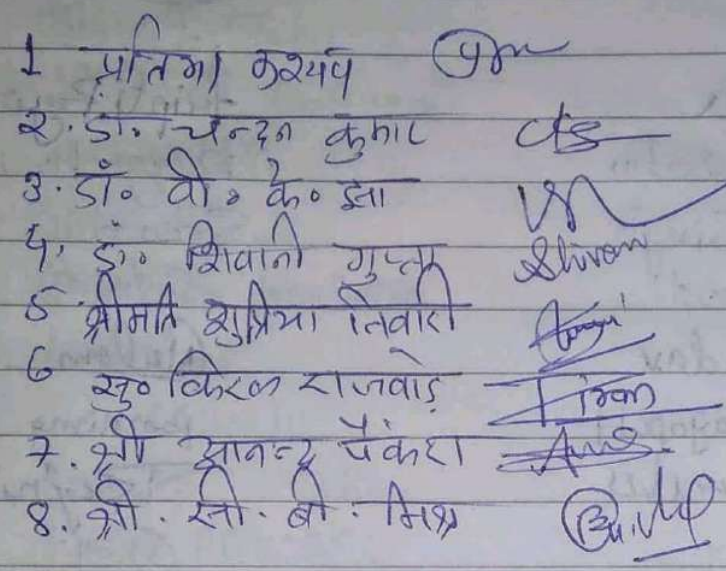 1 प्रतिमा कश्यप
२. डॉ. चन्दन कुमार
3. डॉ० वी० के० झा
4. डॉ० शिवानी गुप्ता Shivani
5 श्रीमति सुप्रिया तिवारी
6 सु० किरण राजवाड़े Kiran
7. श्री आनन्द पैंकरा
8. श्री. सी. बी. मिश्र